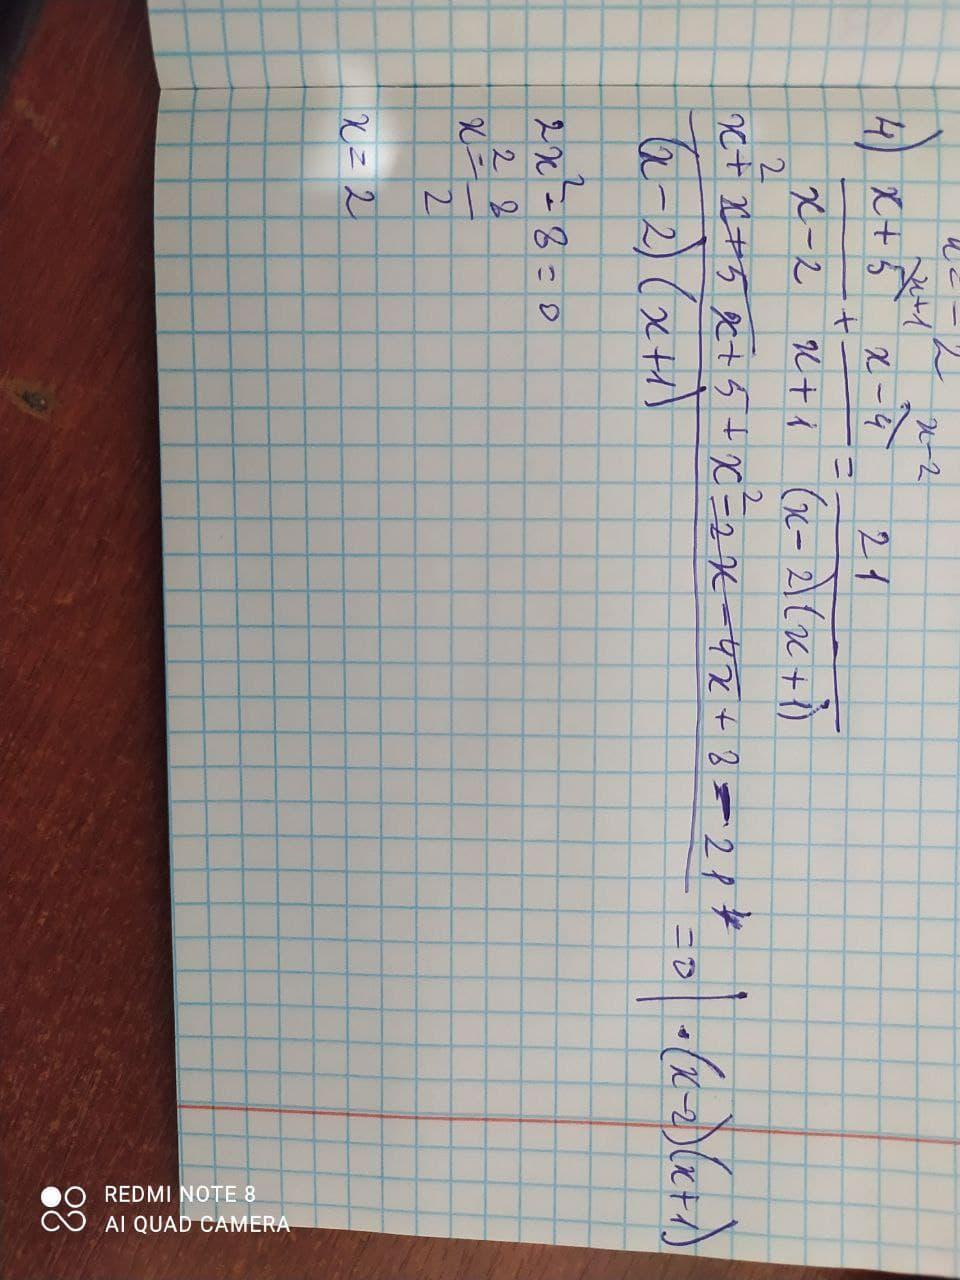 x = -2
4) x+5 \x+1 x-4 \x-2 21
― + ― = ―
x-2 x+1 (x-2)(x+1)
x² + x + 5x + 5 + x² - 2x - 4x + 8 - 21 = 0 | ·(x-2)(x+1)
(x-2)(x+1)
2x² - 8 = 0
x² = 8
2
x = 2
REDMI NOTE 8
AI QUAD CAMERA